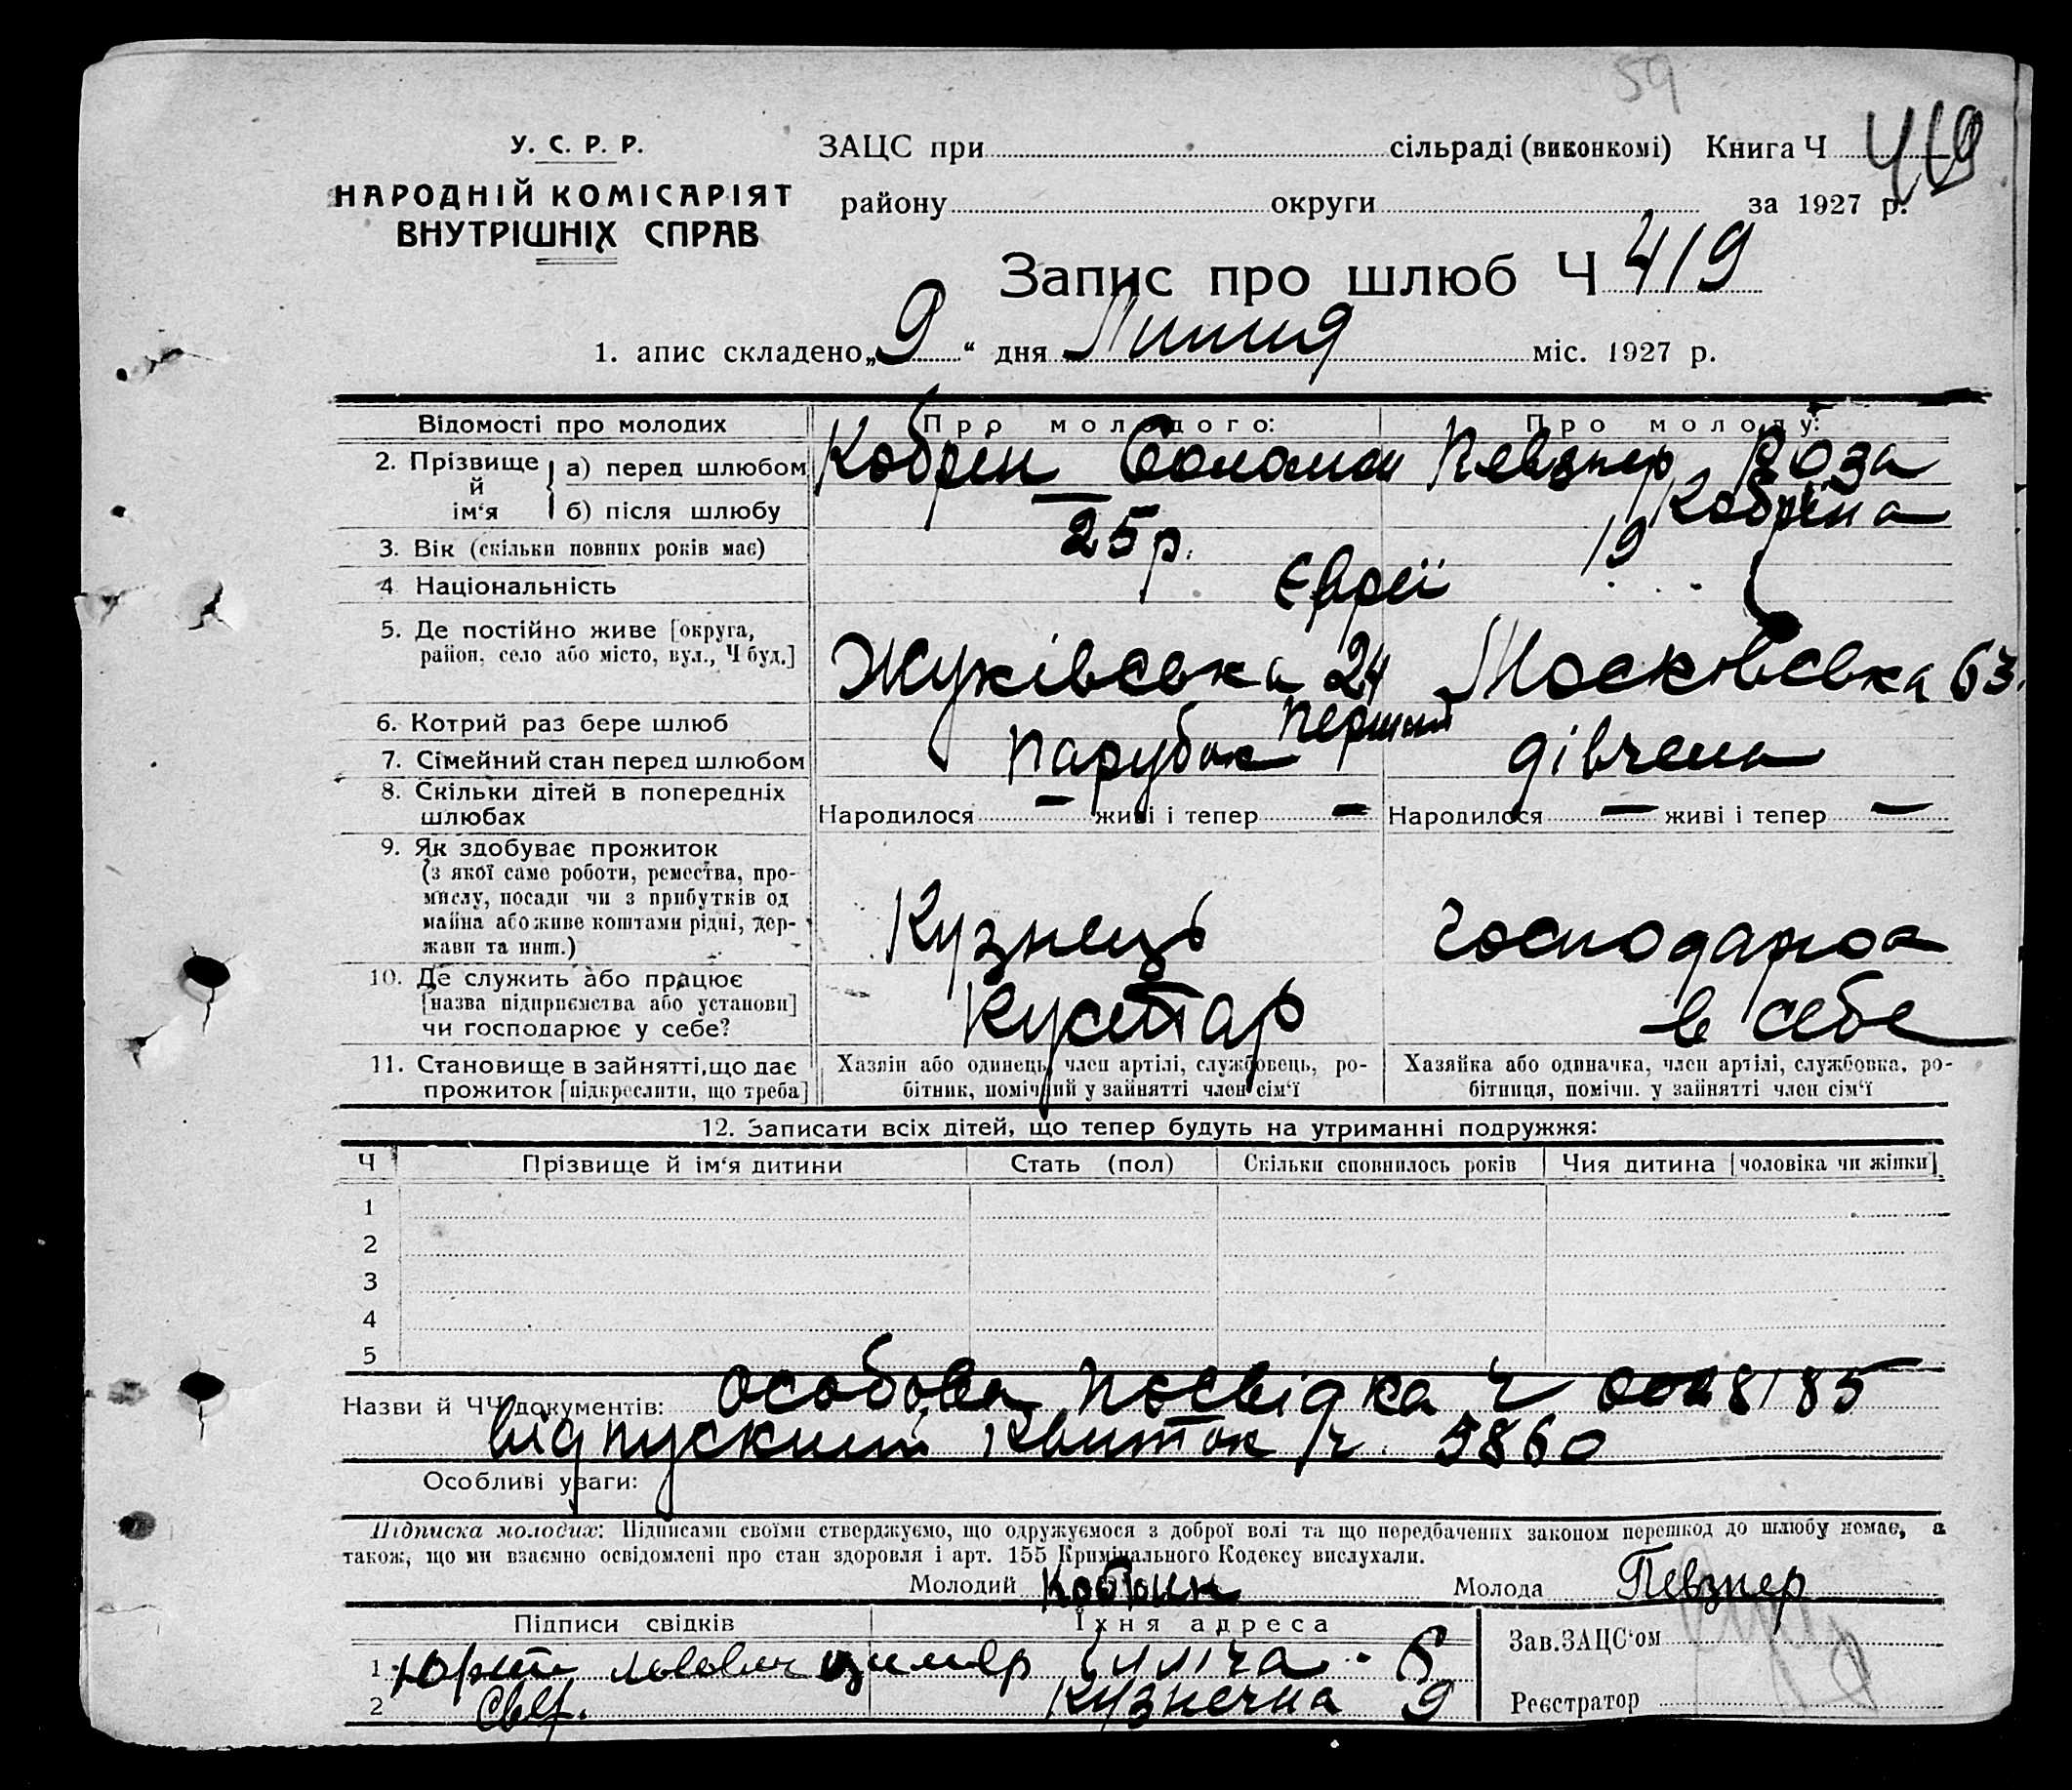 59
У. С. Р. Р.
НАРОДНІЙ КОМІСАРІЯТ
ВНУТРІШНІХ СПРАВ
ЗАЦС при сільраді (виконкомі) Книга Ч 419
району округи за 1927 р.
Запис про шлюб Ч 419
1. апис складено „9“ дня Липня міс. 1927 р.
Відомості про молодих Про молодого: Про молоду:
2. Прізвище й ім‘я
а) перед шлюбом Кобрін Соломон Певзнер Роза
б) після шлюбу — Кобріна
3. Вік (скільки повних років має) 25 р. 19
4 Національність Євреї
5. Де постійно живе [округа,
район, село або місто, вул., Ч буд.] Жуківська 24 Московська 63.
6. Котрий раз бере шлюб Перший
7. Сімейний стан перед шлюбом Парубок дівчена
8. Скільки дітей в попередніх
шлюбах Народилося — живі і тепер — Народилося — живі і тепер —
9. Як здобуває прожиток
(з якої саме роботи, ремества, про-
мислу, посади чи з прибутків од
майна або живе коштами рідні, дер-
жави та инш.) Кузнець господарка
10. Де служить або працює
[назва підприємства або установи]
чи господарює у себе? Кустар в себе
11. Становище в зайнятті, що дає
прожиток [підкреслити, що треба]
Хазяїн або одинець, член артілі, службовець, ро-
бітник, помічний у зайнятті член сім‘ї
Хазяйка або одиначка, член артілі, службовка, ро-
бітниця, помічн. у зайнятті член сім‘ї
12. Записати всіх дітей, що тепер будуть на утриманні подружжя:
Ч Прізвище й ім‘я дитини Стать (пол) Скільки сповнилось років Чия дитина [чоловіка чи жінки]
1
2
3
4
5
Назви й ЧЧ документів: особова посвідка ч 0028185
відпускний квиток ч. 5860
Особливі уваги:
Підписка молодих: Підписами своїми стверджуємо, що одружуємося з доброї волі та що передбачених законом перешкод до шлюбу немає, а
також, що ми взаємно освідомлені про стан здоровля і арт. 155 Кримінального Кодексу вислухали.
Молодий Кобрин Молода Певзнер
Підписи свідків Їхня адреса
1 Ілліча - 6
2 Кузнечна 9
Зав. ЗАЦС‘ом
Реєстратор